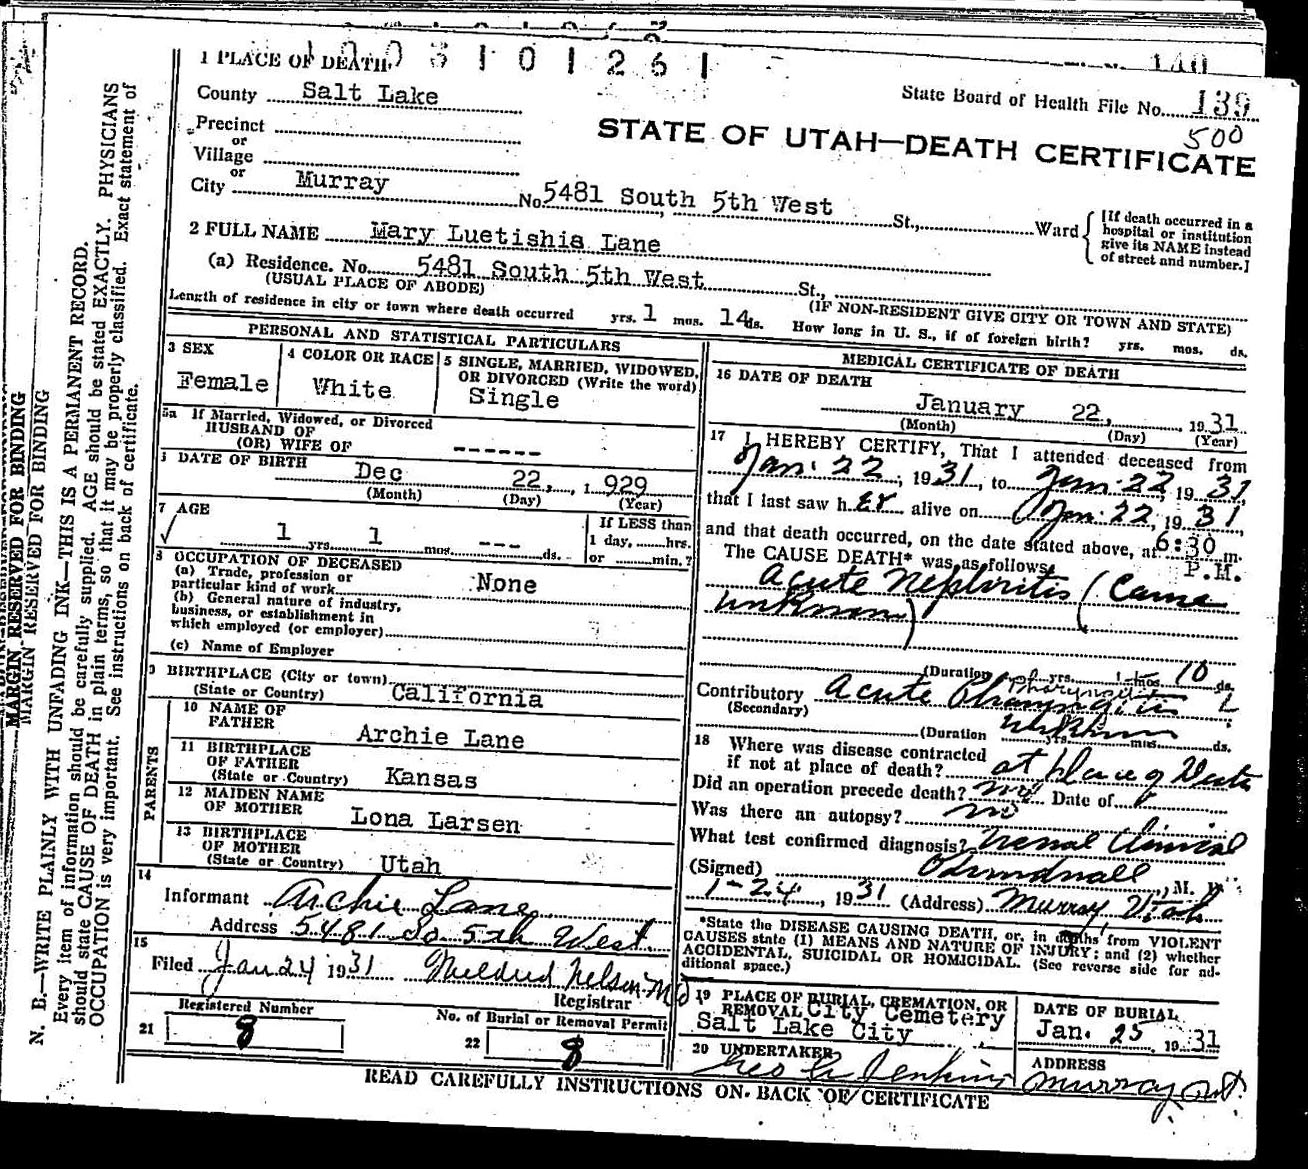 1003101261
140
1 PLACE OF DEATH
State Board of Health File No. 139
500
County Salt Lake
STATE OF UTAH—DEATH CERTIFICATE
Precinct
or
Village
or
City Murray No 5481 South 5th West St., Ward
[If death occurred in a hospital or institution give its NAME instead of street and number.]
2 FULL NAME Mary Luetishia Lane
(a) Residence. No. 5481 South 5th West St.,
(USUAL PLACE OF ABODE) (IF NON-RESIDENT GIVE CITY OR TOWN AND STATE)
Length of residence in city or town where death occurred yrs. 1 mos. 14 ds. How long in U. S., if of foreign birth? yrs. mos. ds.
PERSONAL AND STATISTICAL PARTICULARS
3 SEX
Female
4 COLOR OR RACE
White
5 SINGLE, MARRIED, WIDOWED, OR DIVORCED (Write the word)
Single
5a If Married, Widowed, or Divorced
HUSBAND OF
(OR) WIFE OF ------
DATE OF BIRTH Dec 22, 1929
(Month) (Day) (Year)
7 AGE
1 yrs. 1 mos. --- ds.
If LESS than
1 day, hrs.
or min.?
8 OCCUPATION OF DECEASED
(a) Trade, profession or
particular kind of work None
(b) General nature of industry,
business, or establishment in
which employed (or employer)
(c) Name of Employer
9 BIRTHPLACE (City or town)
(State or Country) California
PARENTS
10 NAME OF
FATHER Archie Lane
11 BIRTHPLACE
OF FATHER
(State or Country) Kansas
12 MAIDEN NAME
OF MOTHER Lona Larsen
13 BIRTHPLACE
OF MOTHER
(State or Country) Utah
14
Informant Archie Lane
Address 5481 So 5th West
15
Filed Jan 24 1931 Mildred Nelson M.D.
Registrar
Registered Number
21 8
No. of Burial or Removal Permit
22 8
MEDICAL CERTIFICATE OF DEATH
16 DATE OF DEATH
January 22, 1931
(Month) (Day) (Year)
17 I HEREBY CERTIFY, That I attended deceased from
Jan. 22, 1931, to Jan. 22, 1931,
that I last saw her alive on Jan. 22, 1931,
and that death occurred, on the date stated above, at 6:30 m.
P.M.
The CAUSE DEATH* was as follows
Acute Nephritis (Cause
unknown)
(Duration yrs. mos. 10 ds.
Contributory Acute Pharyngitis
Pharyngitis
(Secondary)
(Duration unknown yrs. mos. ds.
18 Where was disease contracted
if not at place of death? at place of Death
Did an operation precede death? no Date of
Was there an autopsy? no
What test confirmed diagnosis? Renal Clinical
(Signed) M. D.
1-24, 1931 (Address) Murray, Utah
*State the DISEASE CAUSING DEATH, or, in deaths from VIOLENT
CAUSES state (1) MEANS AND NATURE OF INJURY; and (2) whether
ACCIDENTAL, SUICIDAL OR HOMICIDAL. (See reverse side for additional space.)
19 PLACE OF BURIAL, CREMATION, OR
REMOVAL City Cemetery
Salt Lake City
DATE OF BURIAL
Jan. 25, 1931
20 UNDERTAKER
Geo A Jenkins
ADDRESS
Murray Ut.
READ CAREFULLY INSTRUCTIONS ON BACK OF CERTIFICATE
MARGIN RESERVED FOR BINDING
MARGIN RESERVED FOR BINDING
N. B.—WRITE PLAINLY WITH UNFADING INK—THIS IS A PERMANENT RECORD.
Every item of information should be carefully supplied. AGE should be stated EXACTLY. PHYSICIANS
should state CAUSE OF DEATH in plain terms, so that it may be properly classified. Exact statement of
OCCUPATION is very important. See instructions on back of certificate.